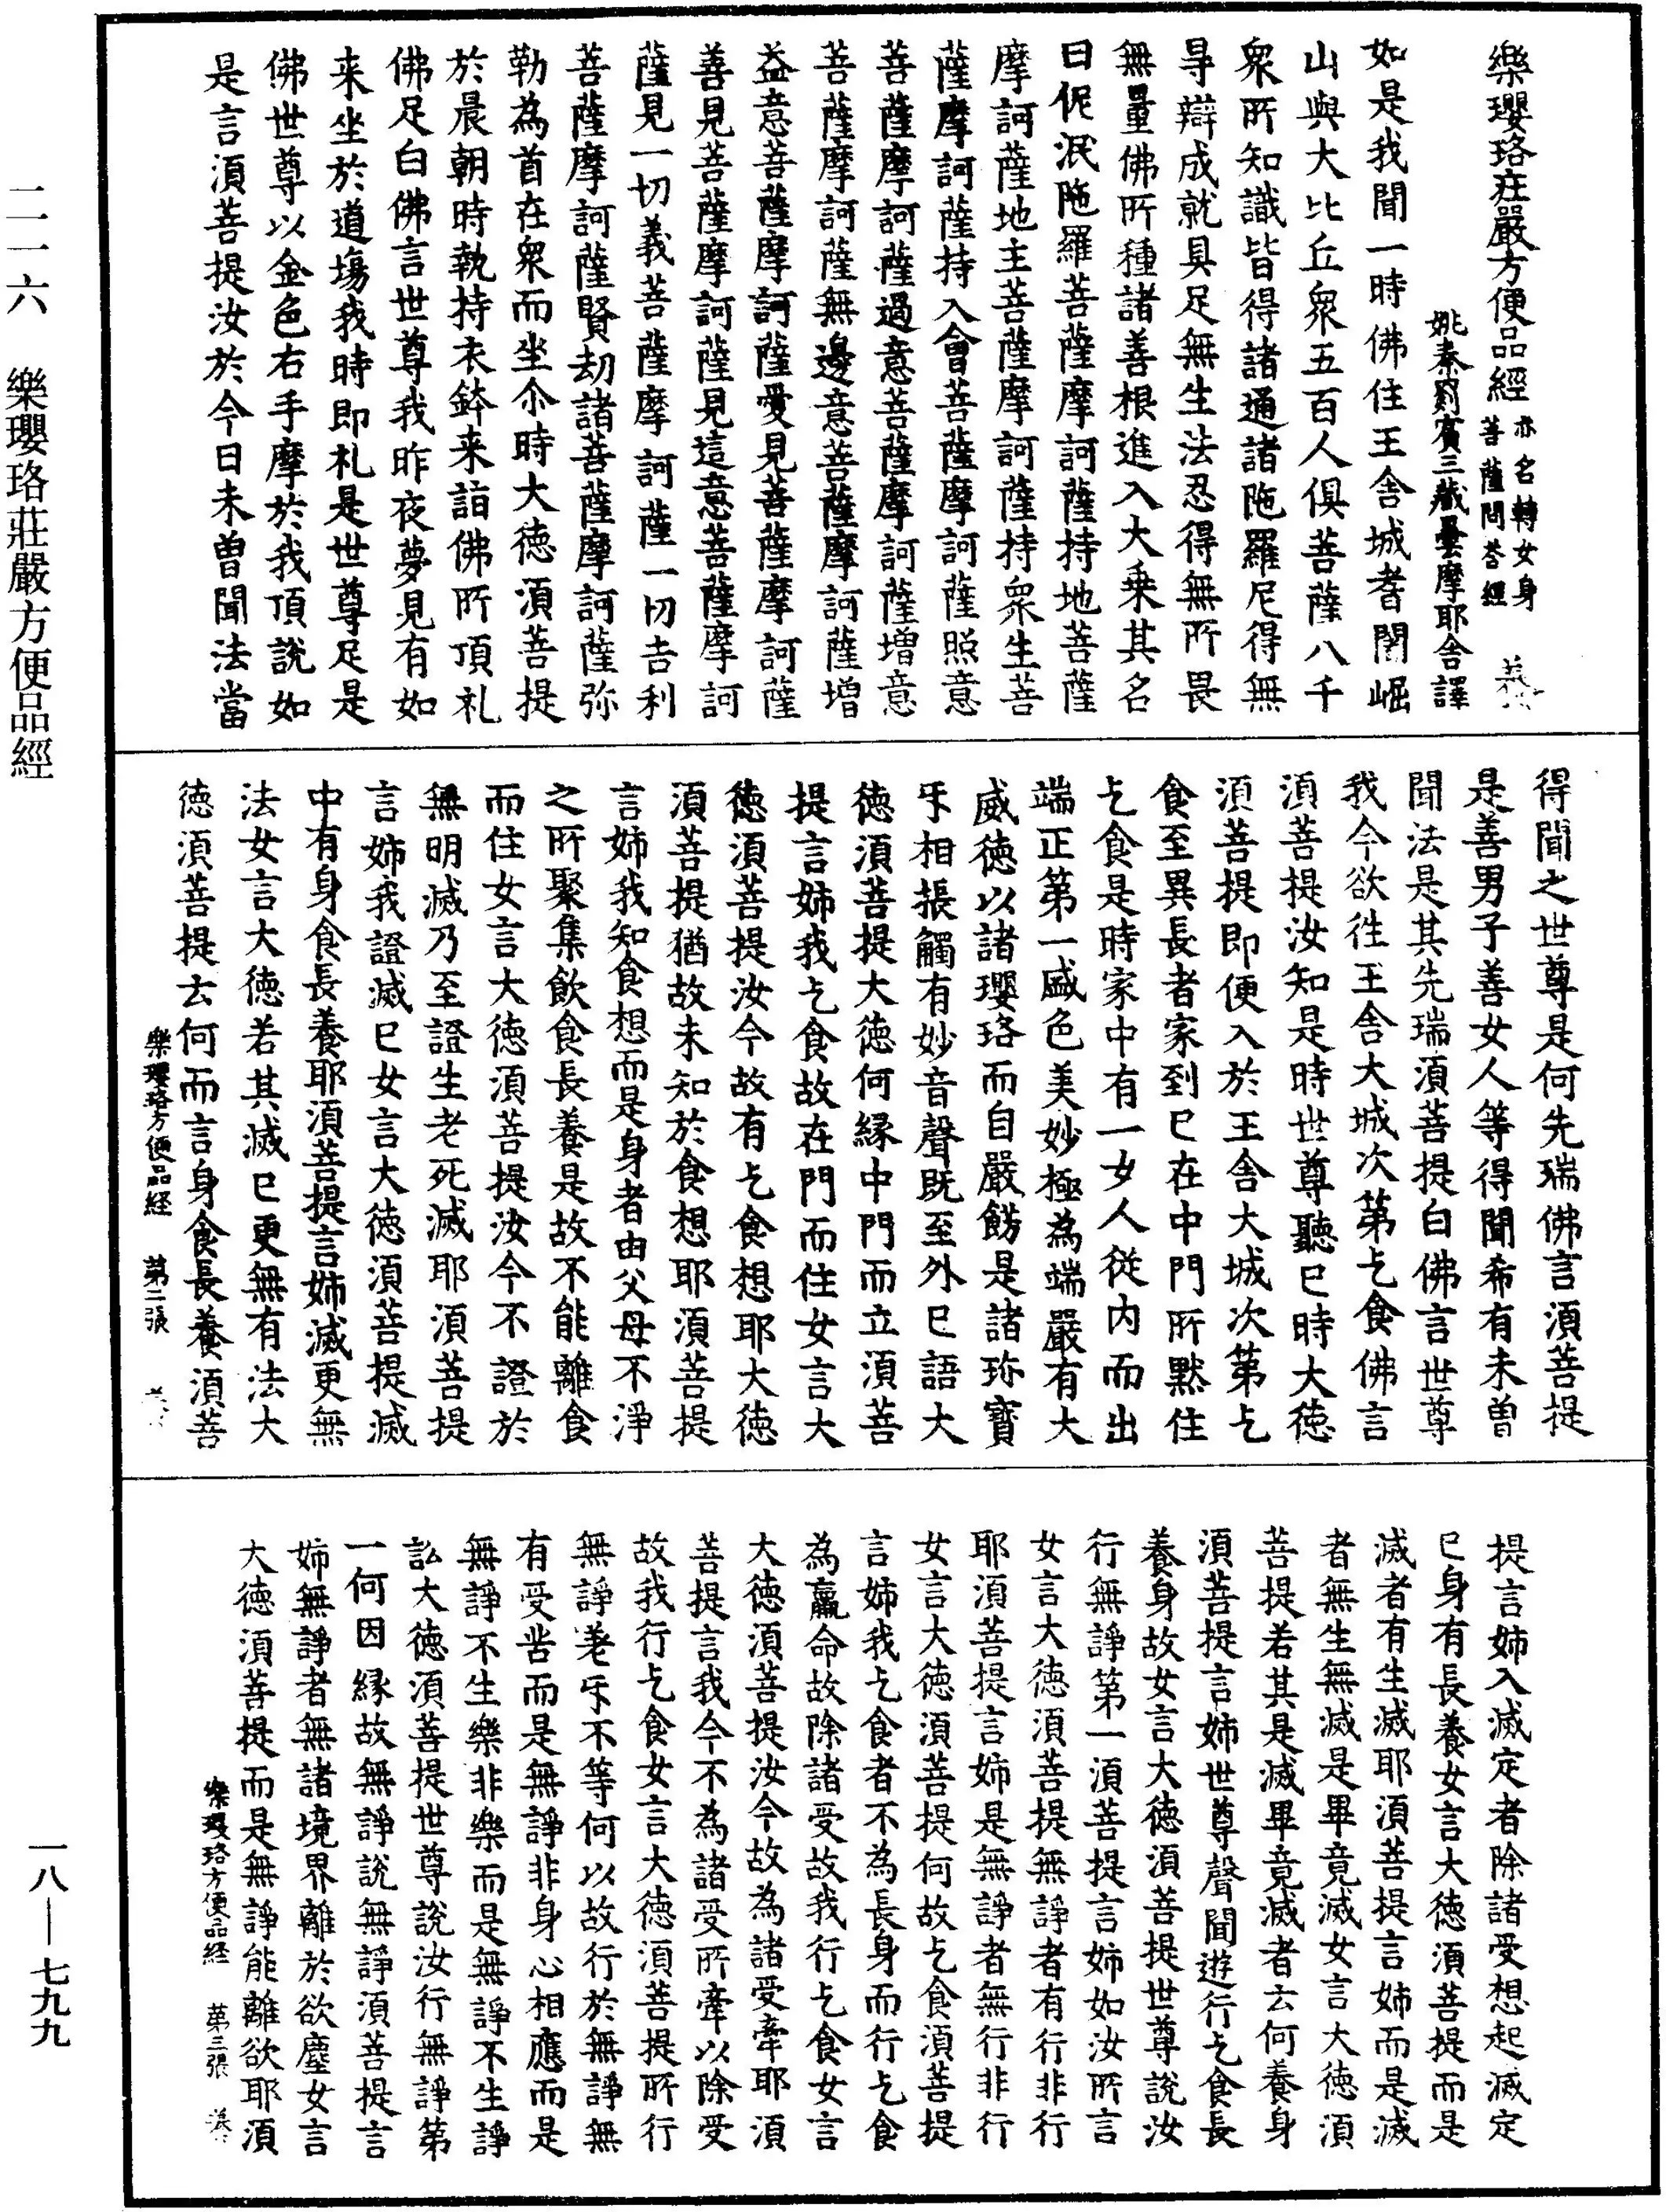 樂瓔珞庄嚴方便品經 亦名轉女身菩薩問荅經
姚秦罽賓三藏曇摩耶舍譯
如是我聞一時佛住王舍城耆闍崛
山與大比丘衆五百人俱菩薩八千
衆所知識皆得諸通諸陁羅尼得無
㝵辯成就具足無生法忍得無所畏
無量佛所種諸善根進入大乗其名
曰伲泯陁羅菩薩摩訶薩持地菩薩
摩訶薩地主菩薩摩訶薩持衆生菩
薩摩訶薩持入會菩薩摩訶薩照意
菩薩摩訶薩過意菩薩摩訶薩增意
菩薩摩訶薩無邊意菩薩摩訶薩增
益意菩薩摩訶薩愛見菩薩摩訶薩
善見菩薩摩訶薩見這意菩薩摩訶
薩見一切義菩薩摩訶薩一切吉利
菩薩摩訶薩賢劫諸菩薩摩訶薩弥
勒為首在衆而坐尒時大徳湏菩提
於晨朝時執持衣鉢来詣佛所頂礼
佛足白佛言世尊我昨夜夢見有如
来坐於道場我時即礼是世尊足是
佛世尊以金色右手摩於我頂說如
是言湏菩提汝於今日未曾聞法當
得聞之世尊是何先瑞佛言湏菩提
是善男子善女人等得聞希有未曾
聞法是其先瑞湏菩提白佛言世尊
我今欲往王舍大城次第乞食佛言
湏菩提汝知是時世尊聽已時大徳
湏菩提即便入於王舍大城次第乞
食至異長者家到已在中門所黙住
乞食是時家中有一女人従内而出
端正第一盛色美妙極為端嚴有大
威徳以諸瓔珞而自嚴餝是諸珎寶
㸦相振觸有妙音聲既至外已語大
徳湏菩提大徳何縁中門而立湏菩
提言姉我乞食故在門而住女言大
徳湏菩提汝今故有乞食想耶大徳
湏菩提猶故未知於食想耶湏菩提
言姉我知食想而是身者由父母不淨
之所聚集飲食長養是故不能離食
而住女言大徳湏菩提汝今不證於
無明滅乃至證生老死滅耶湏菩提
言姉我證滅已女言大徳湏菩提滅
中有身食長養耶湏菩提言姉滅更無
法女言大徳若其滅已更無有法大
徳湏菩提云何而言身食長養湏菩
樂瓔珞方便品経 第二張
提言姉入滅定者除諸受想起滅定
已身有長養女言大徳湏菩提而是
滅者有生滅耶湏菩提言姉而是滅
者無生無滅是畢竟滅女言大徳湏
菩提若其是滅畢竟滅者云何養身
湏菩提言姉世尊聲聞遊行乞食長
養身故女言大徳湏菩提世尊說汝
行無諍第一湏菩提言姉如汝所言
女言大徳湏菩提無諍者有行非行
耶湏菩提言姉是無諍者無行非行
女言大徳湏菩提何故乞食湏菩提
言姉我乞食者不為長身而行乞食
為羸命故除諸受故我行乞食女言
大徳湏菩提汝今故為諸受牽耶湏
菩提言我今不為諸受所牽以除受
故我行乞食女言大徳湏菩提所行
無諍㳥㸦不等何以故行於無諍無
有受畨而是無諍非身心相應而是
無諍不生樂非樂而是無諍不生諍
訟大徳湏菩提世尊說汝行無諍第
一何因縁故無諍說無諍湏菩提言
姉無諍者無諸境界離於欲塵女言
大徳湏菩提而是無諍能離欲耶湏
樂瓔珞方便品経 第三張
二一一六 樂瓔珞莊嚴方便品經
一八—七九九